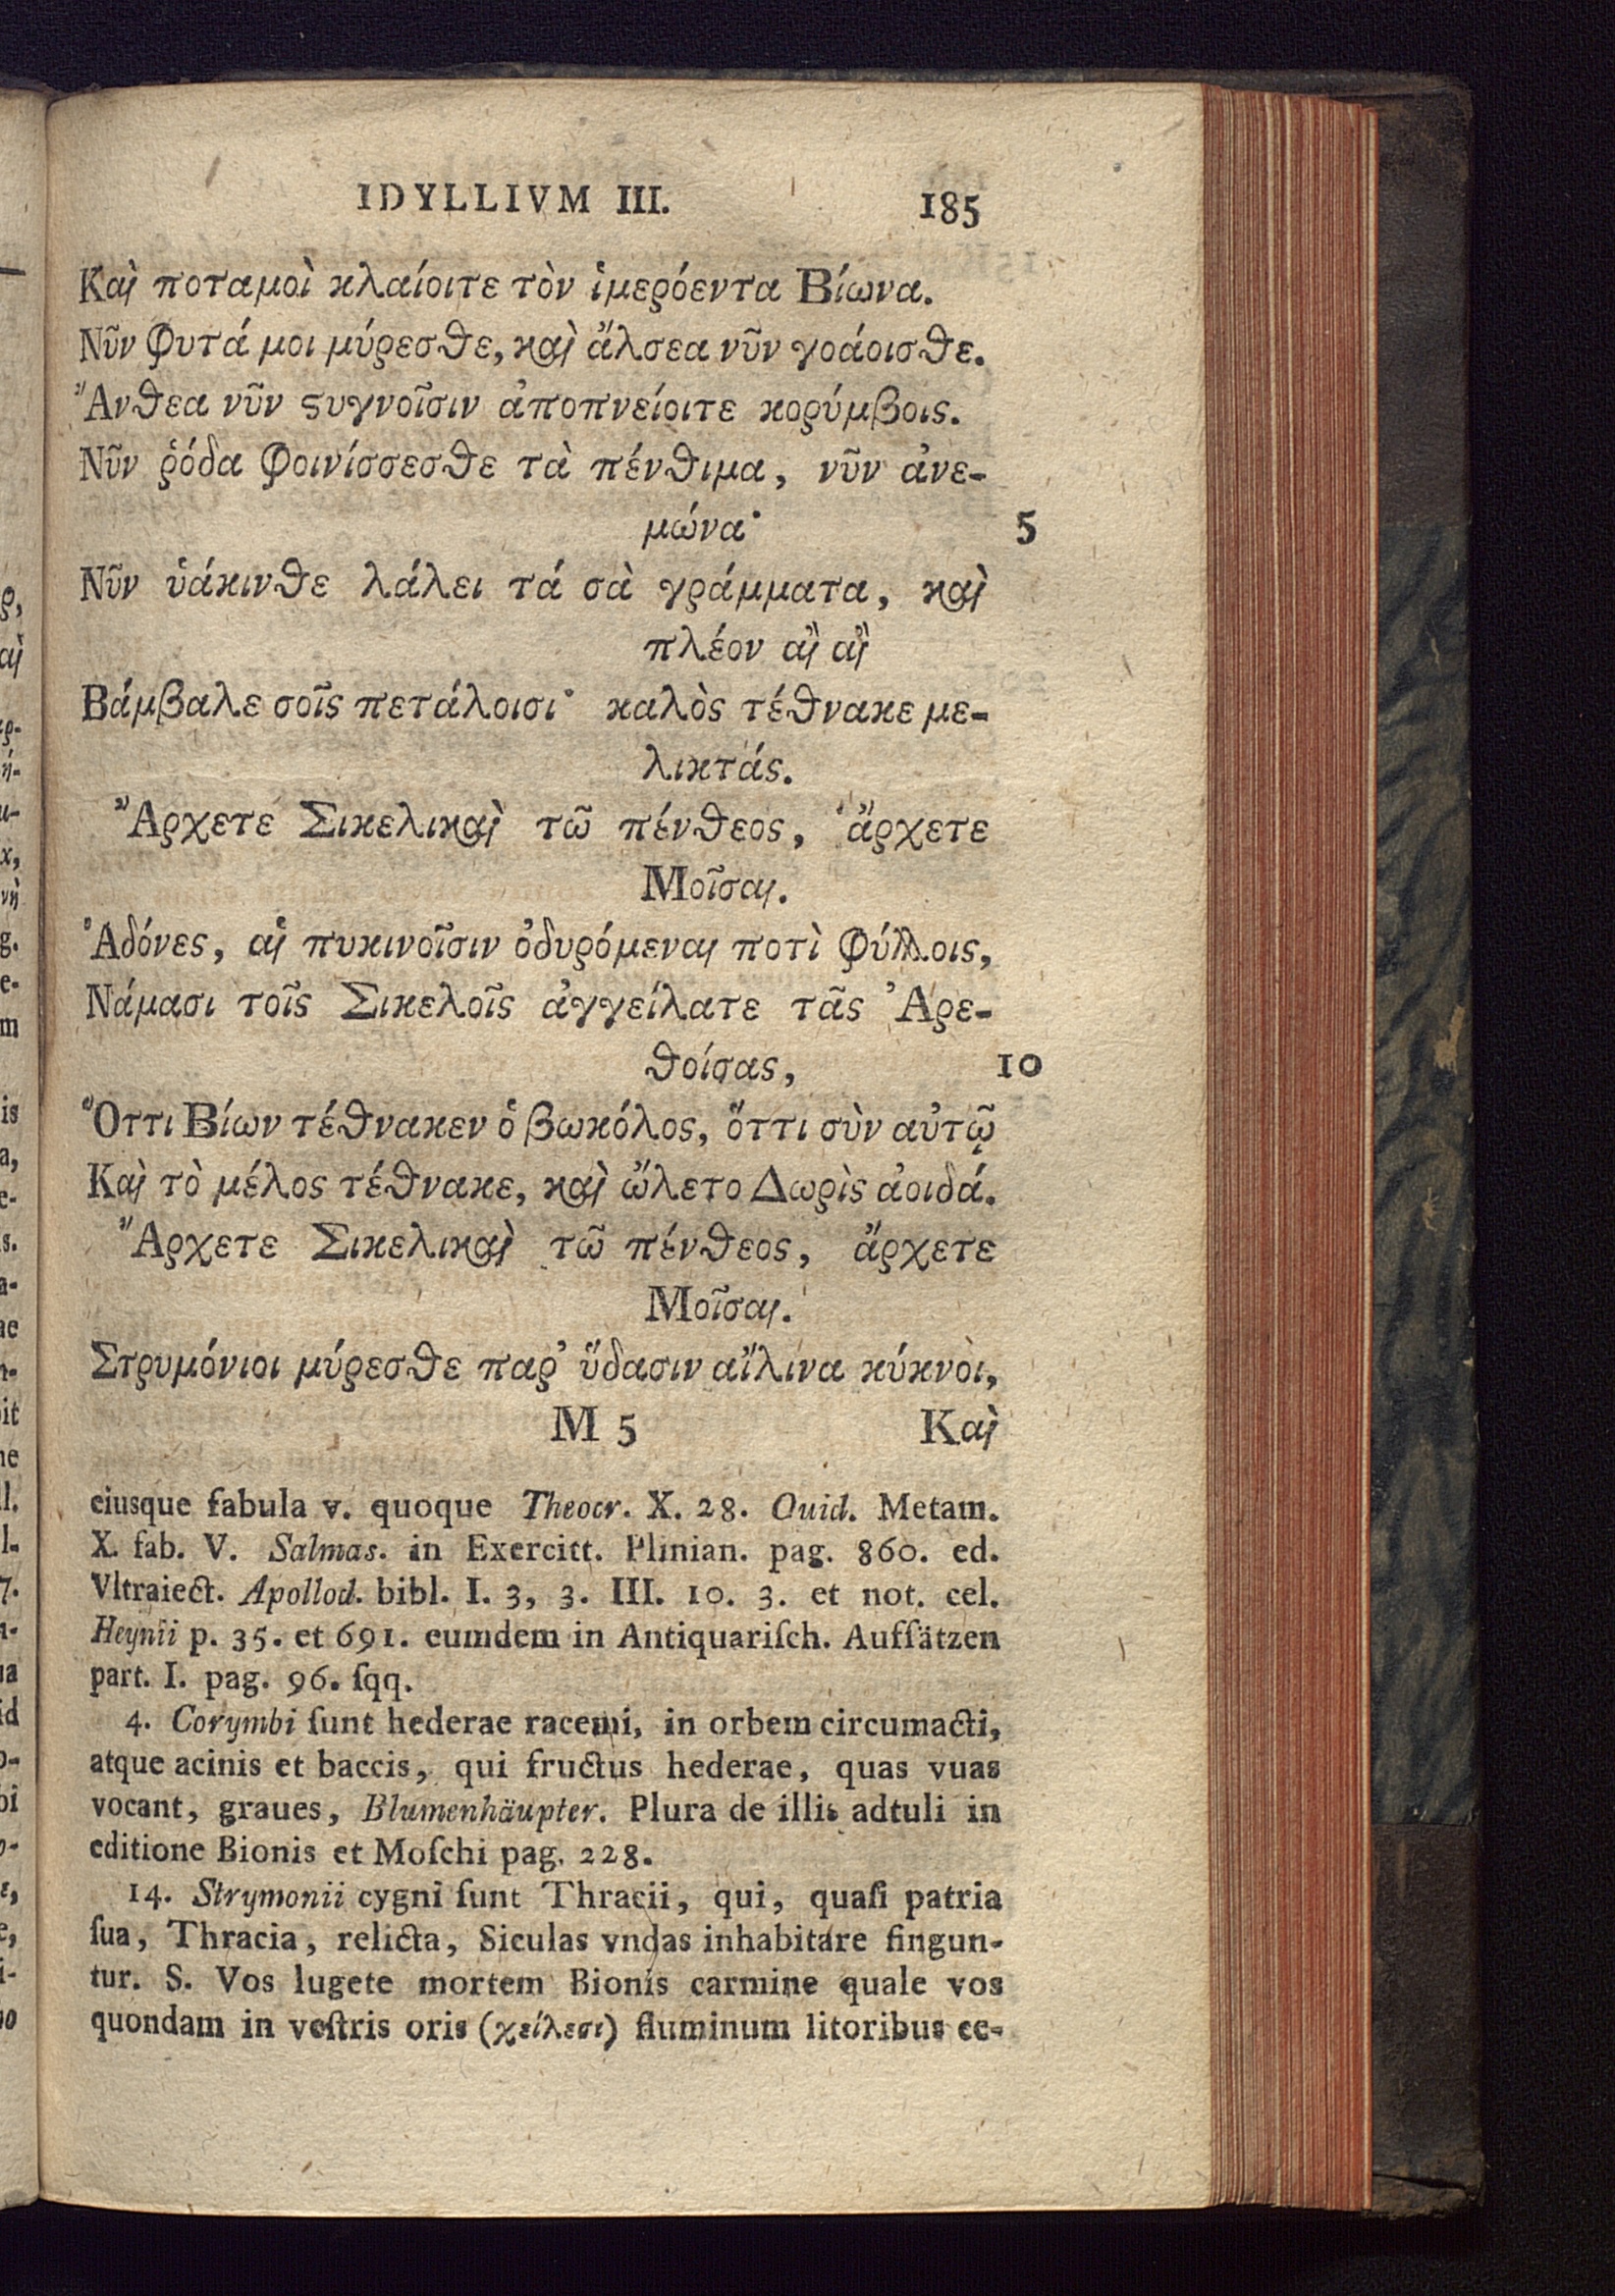 IDYLLIVM III. 185
Καὶ ποταμοὶ κλαίοιτε τὸν ἱμερόεντα Βίωνα.
Νῦν φυτά μοι μύρεσθε, καὶ ἄλσεα νῦν γοάοισθε.
Ἄνθεα νῦν ϛυγνοῖσιν ἀποπνείοιτε κορύμβοις.
Νῦν ῥόδα φοινίσσεσθε τὰ πένθιμα, νῦν ἀνε-
μώνα· 5
Νῦν ὑάκινθε λάλει τά σὰ γράμματα, καὶ
πλέον αἲ αἲ
Βάμβαλε σοῖς πετάλοισι· καλὸς τέθνακε με-
λικτάς.
Ἄρχετε Σικελικαὶ τῶ πένθεος, ἄρχετε
Μοῖσαι.
Ἀδόνες, αἱ πυκινοῖσιν ὀδυρόμεναι ποτὶ φύλλοις,
Νάμασι τοῖς Σικελοῖς ἀγγείλατε τᾶς Ἀρε-
θοίσας, 10
Ὅττι Βίων τέθνακεν ὁ βωκόλος, ὅττι σὺν αὐτῷ
Καὶ τὸ μέλος τέθνακε, καὶ ὤλετο Δωρὶς ἀοιδά.
Ἄρχετε Σικελικαὶ τῶ πένθεος, ἄρχετε
Μοῖσαι.
Στρυμόνιοι μύρεσθε παρ' ὕδασιν αἴλινα κύκνοι,
M 5 Καὶ
eiusque fabula v. quoque Theocr. X. 28. Ouid. Metam.
X. fab. V. Salmas. in Exercitt. Plinian. pag. 860. ed.
Vltraiect. Apollod. bibl. I. 3, 3. III. 10. 3. et not. cel.
Heynii p. 35. et 691. eumdem in Antiquariſch. Aufſätzen
part. I. pag. 96. ſqq.
4. Corymbi ſunt hederae racemi, in orbem circumacti,
atque acinis et baccis, qui fructus hederae, quas vuas
vocant, graues, Blumenhäupter. Plura de illis adtuli in
editione Bionis et Moſchi pag. 228.
14. Strymonii cygni ſunt Thracii, qui, quaſi patria
ſua, Thracia, relicta, Siculas vndas inhabitare fingun-
tur. S. Vos lugete mortem Bionis carmine quale vos
quondam in veſtris oris (χείλεσι) fluminum litoribus ce-